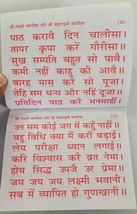 श्री लक्ष्मी चालीसा और श्री महालक्ष्मी चालीसा
पाठ करावै दिन चालीसा।
तापर कृपा करें गौरीसा।।
सुख सम्पति बहुत सो पावै।
कमी नहीं काहू की आवै।।
बारह मास करै सो पूजा।
तेहि सम धन्य और नहिं दूजा।।
प्रतिदिन पाठ करै मनमाहीं।
उन सम कोई जग में कहुं नाहीं।।
बहु विधि क्या मैं करौं बड़ाई।
लेय परीक्षा ध्यान लगाई।।
करि विश्वास करें व्रत नेमा।
होय सिद्ध उपजै उर प्रेमा।।
जय जय जय लक्ष्मी भवानी।
सब में व्यापित हो गुणखानी।।